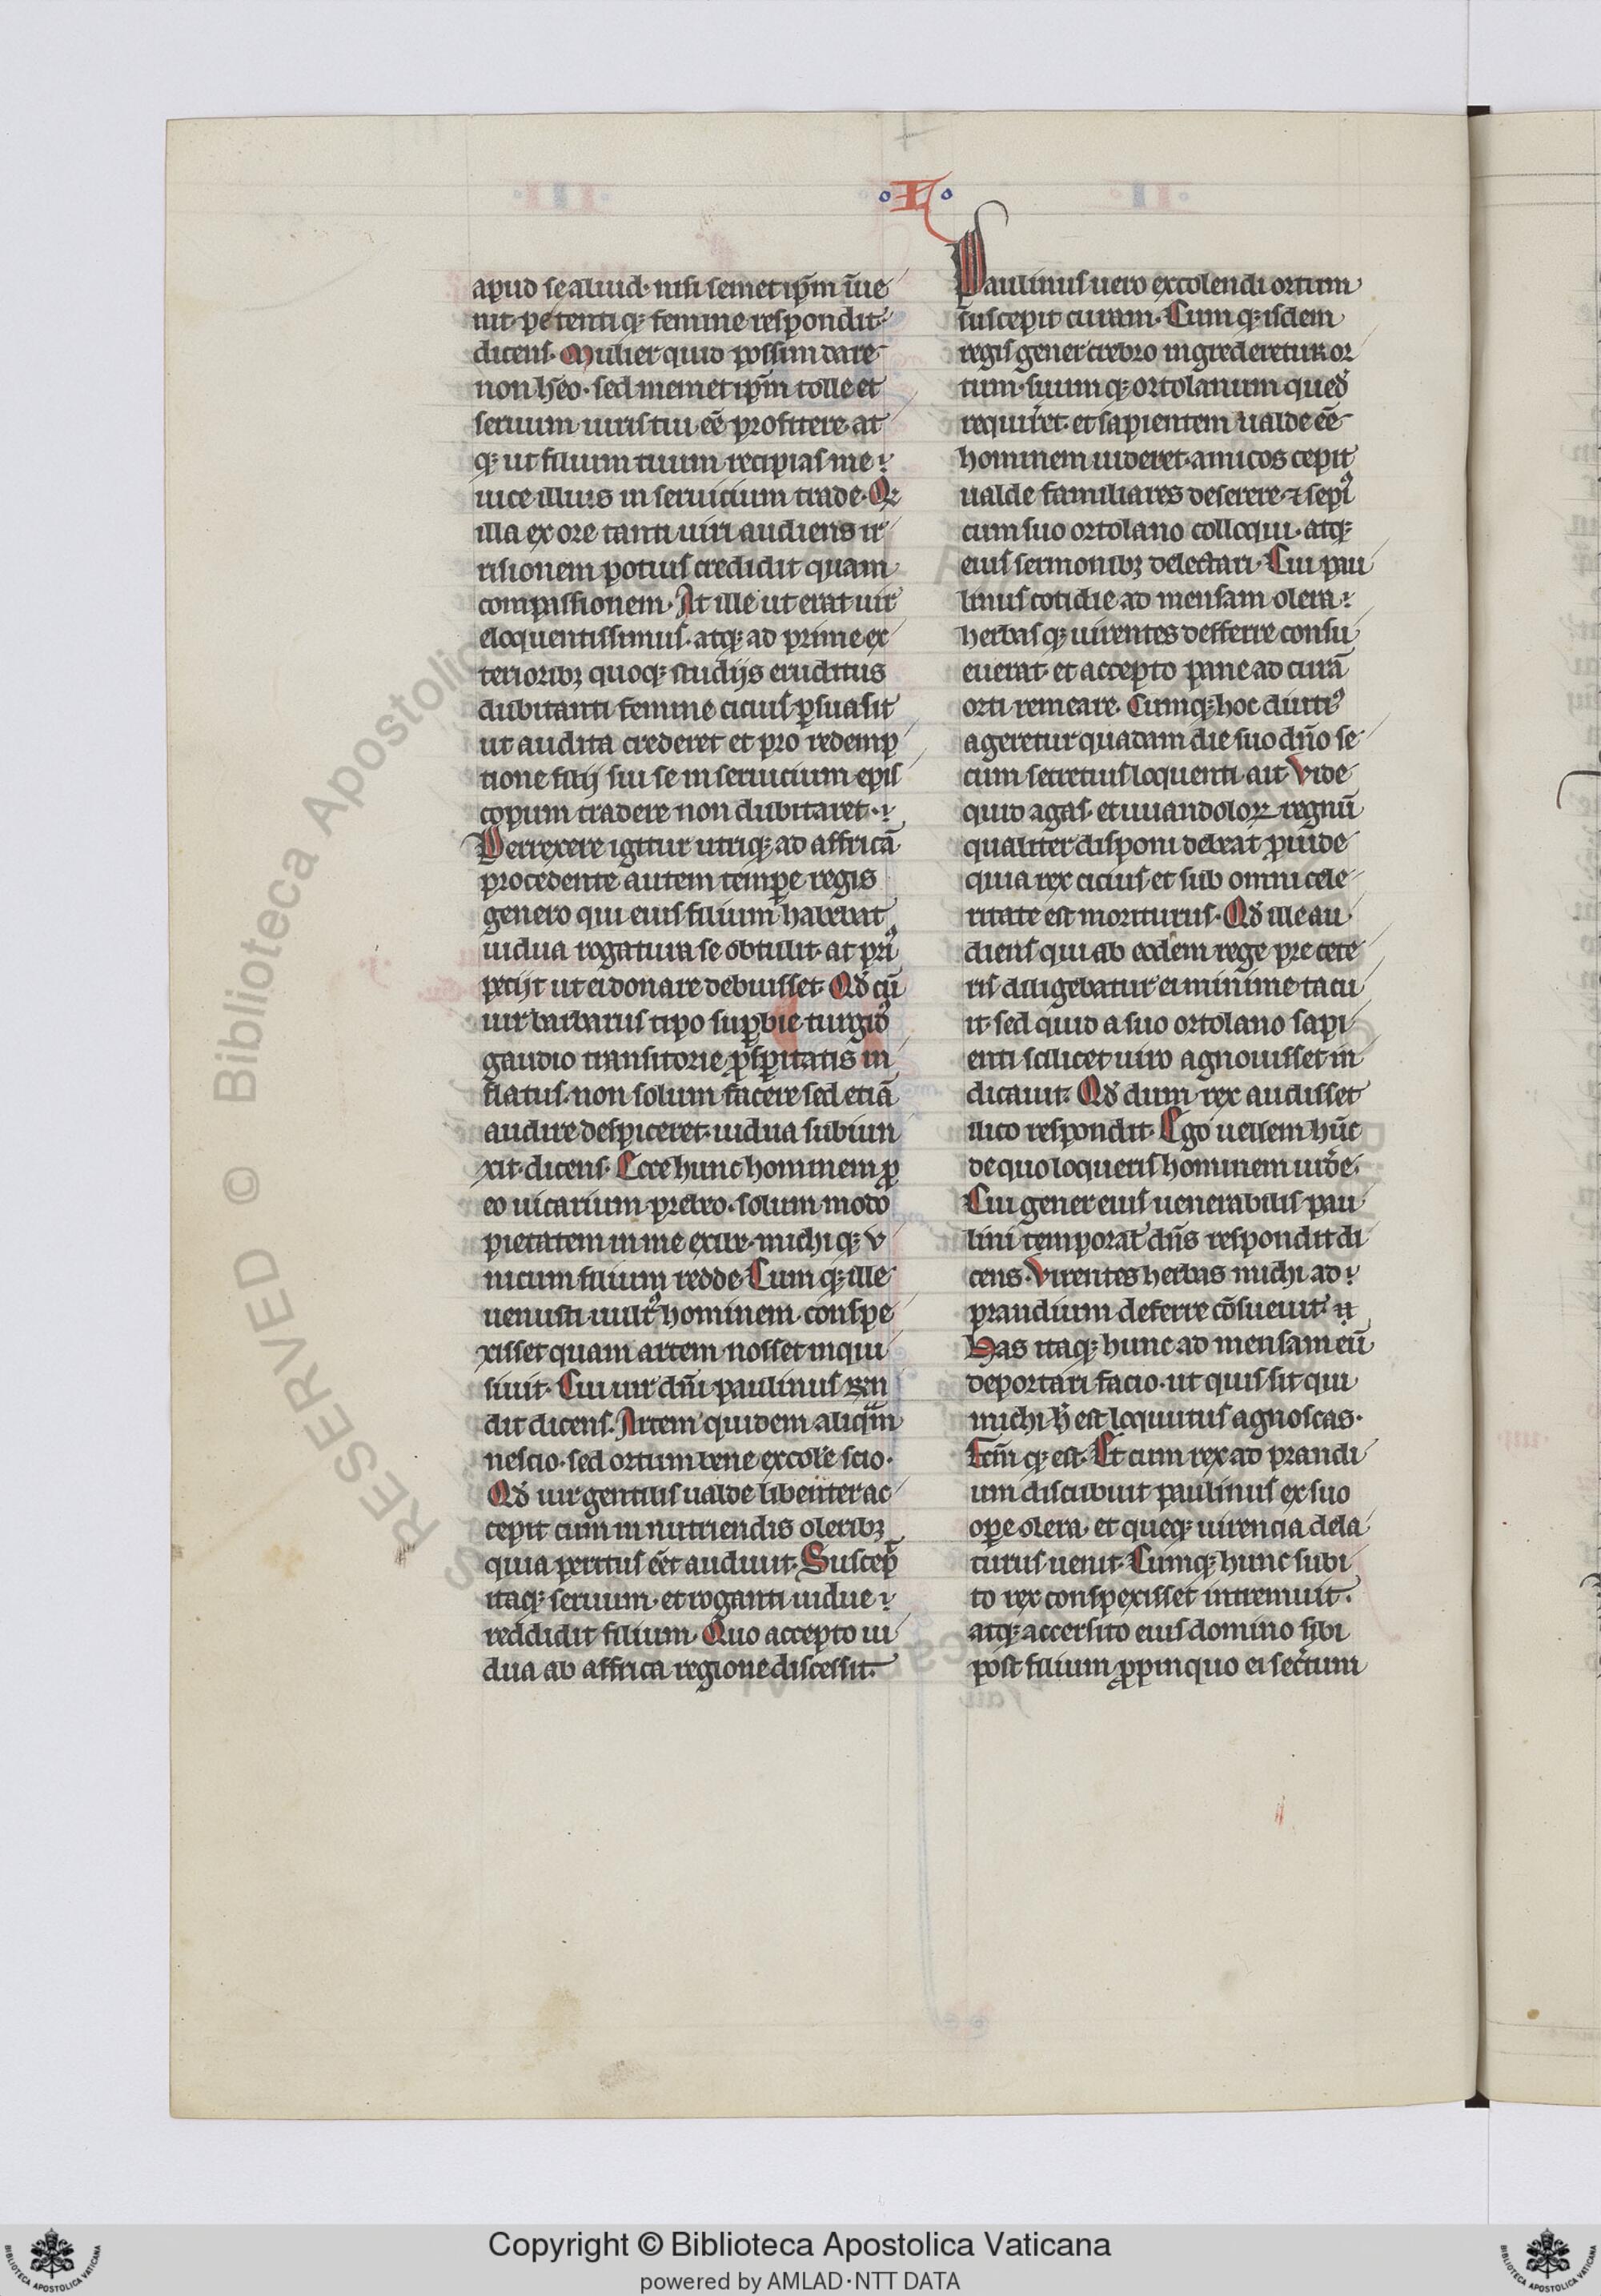 ·L·
apud se aliud· nisi semet ip̄m īue
nit· petenti qꝫ femine respondit
dicens· Mulier quid possim dare
non hēo· sed memet ip̄m tolle et
seruum iuris tui eē profitere· at
qꝫ ut filium tuum recipias me
uice illius in seruicium trade· Qꝺ
illa ex ore tanti uiri audiens ir
risionem potius credidit quam
compassionem· At ille ut erat uir
eloquentissimus· atqꝫ ad prime ex
terioribꝫ quoqꝫ studijs eruditus
dubitanti femine cicius ꝑsuasit
ut audita crederet et pro redemp
tione filij sui se in seruicium epis
copum tradere non dubitaret·
Perrexere igitur utriqꝫ ad affricā
procedente autem temp̄e regis
genero qui eius filium habebat
uidua rogatura se obtulit· at priꝰ
pecijt ut ei donare debuisset· Qd̄ cū
uir barbarus tipo suꝑbie turgidꝰ
gaudio transitorie ꝓsꝑitatis in
flatus· non solum facere sed etiā
audire despiceret· uidua subiun
xit· dicens· Ecce hunc hominem ꝓ
eo uicarium prebeo· solum modo
pietatem in me exibe· michi qꝫ v
nicum filium redde· Cum qꝫ ille
uenusti uultꝰ hominem conspe
xisset quam artem nosset inqui
siuit· Cui uir dn̄i paulinus rn̄
dit dicens· Artem quidem aliqͣm
nescio· sed ortum bene excole᷑ scio·
Qd̄ uir gentilis ualde libenter ac
cepit cum in nutriendis oleribꝫ
quia peritus eēt audiuit· Suscep̄
itaqꝫ seruum· et roganti uidue
reddidit filium· Quo accepto ui
dua ab affrica regione discessit·
Paulinus uero excolendi ortum
suscepit curam· Cum qꝫ isdem
regis gener crebro ingrederetur or
tum· suum qꝫ ortolanum quedā
requir̄et· et sapientem ualde eē
hominem uideret· amicos cepit
ualde familiares deserere· ⁊ sepiꝰ
cum suo ortolano colloqui· atqꝫ
eius sermonibꝫ delectari· Cui pau
linus cotidie ad mensam olera
herbas qꝫ uirentes defferre consu
euerat· et accepto pane ad curā
orti remeare· Cumqꝫ hoc diutiꝰ
ageretur quadam die suo dn̄o se
cum secretius loquenti· ait· Vide
quid agas· et uuandoloꝝ regnū
qualiter disponi debeat ꝓuide
quia rex cicius et sub omni cele
ritate est moriturus· Qd̄ ille au
diens qui ab eodem rege pre cete
ris diligebatur ei minime tacu
it· sed quid a suo ortolano sapi
enti scilicet uiro agnouisset in
dicauit· Qd̄ dum rex audisset
ilico respondit· Ego uellem hūc
de quo loqueris hominem uide᷑·
Cui gener eius uenerabilis pau
lini temporal̄ dn̄s respondit di
cens· Virentes herbas michi ad
prandium deferre cōsueuit·
Has itaqꝫ hunc ad mensam eū
deportari facio· ut quis sit qui
michi h̄ est loquutus agnoscas·
Fcm̄ qꝫ est· Et cum rex ad prandi
um discubuit paulinus ex suo
oꝑe olera· et queqꝫ uirencia dela
turus uenit· Cumqꝫ hunc subi
to rex conspexisset intremuit·
atqꝫ accersito eius domino sibi
post filium ꝓpinquo ei secr̄tum
Copyright © Biblioteca Apostolica Vaticana
powered by AMLAD·NTT DATA